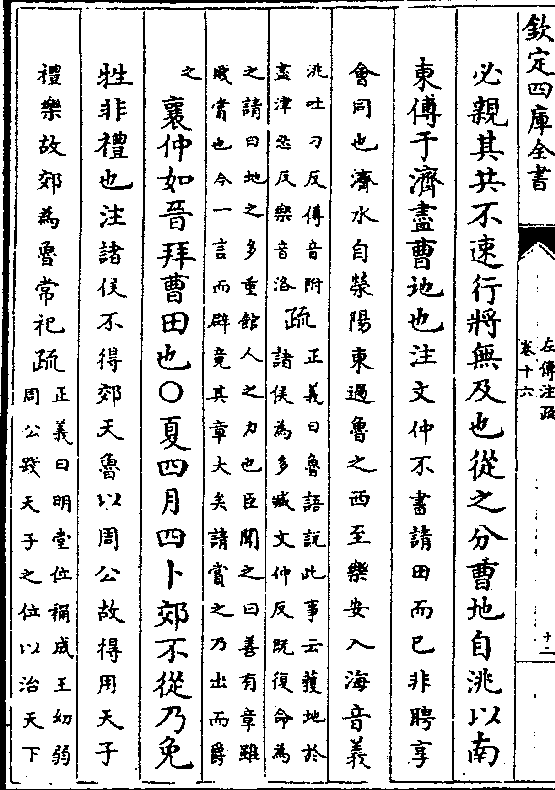 欽定四庫全書
左傳注疏
卷十六
十二
必親其共不速行將無及也從之分曹地自洮以南
東傅于濟盡曹地也注文仲不書請田而已非聘享
會同也濟水自滎陽東過魯之西至樂安入海音義
洮吐刀反傅音附
盡津忍反樂音洛
疏
正義曰魯語說此事云獲地於
諸侯為多臧文仲反既復命為
之請曰地之多重館人之力也臣聞之曰善有章雖
賤賞也今一言而辟竟其章大矣請賞之乃出而爵
之
襄仲如晉拜曹田也○夏四月四卜郊不從乃免
牲非禮也注諸侯不得郊天魯以周公故得用天子
禮樂故郊為魯常祀疏
正義曰明堂位稱成王幼弱
周公踐天子之位以治天下